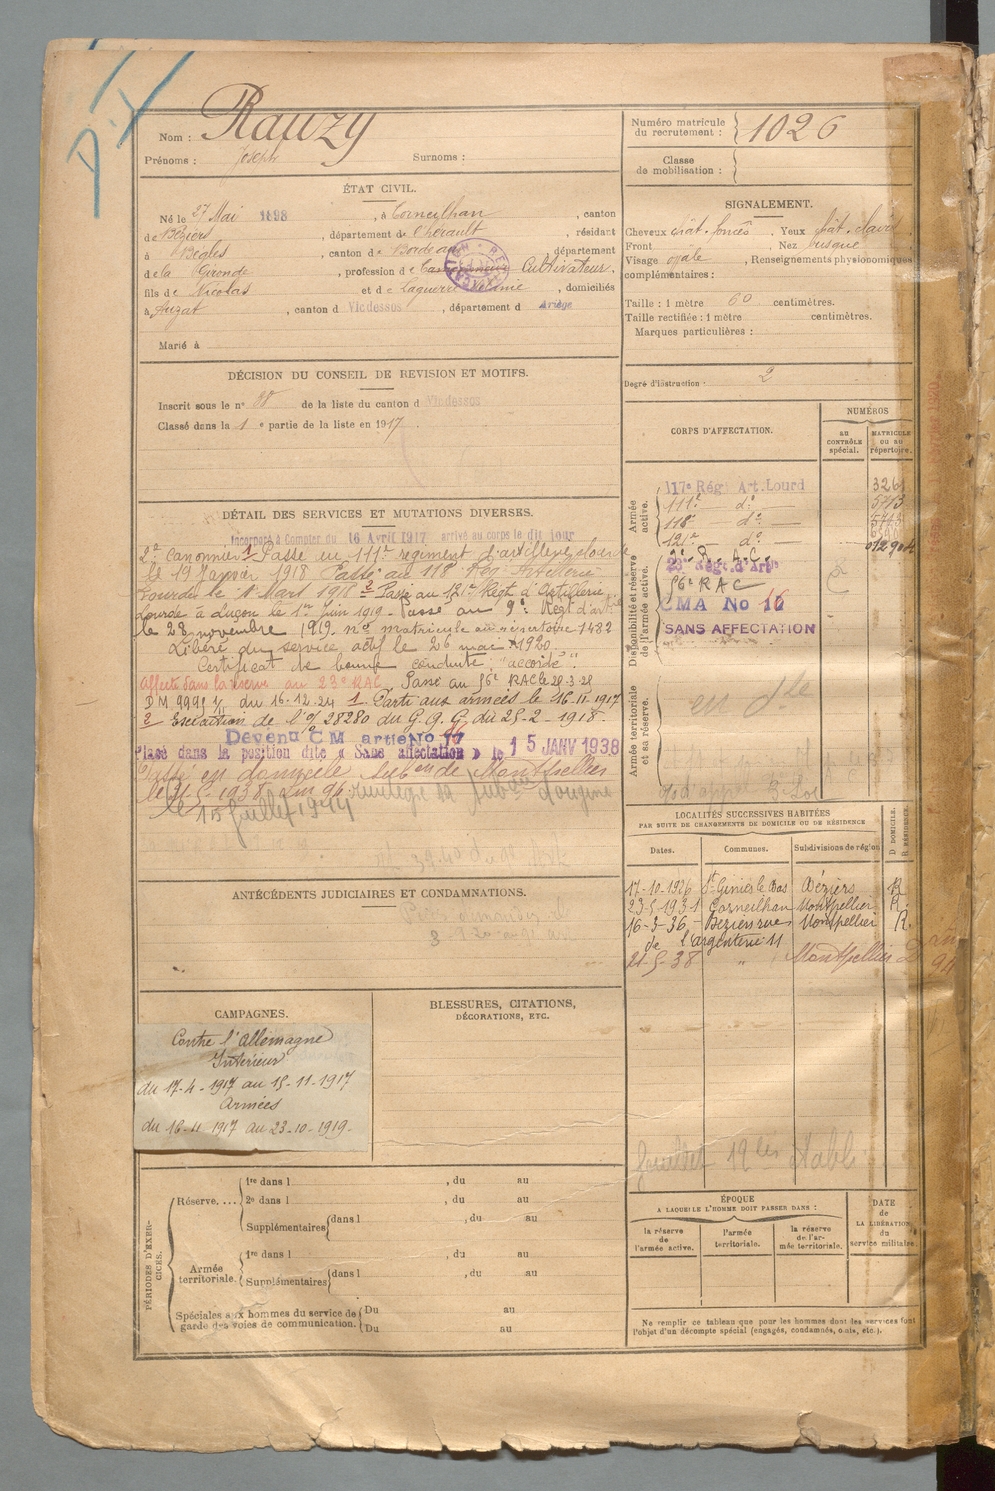 Nom : Rauzy
Prénoms : Joseph Surnoms :
Numéro matricule du recrutement : 1026
Classe de mobilisation :
ÉTAT CIVIL.
Né le 27 Mai 1898, à Corneilhan, canton
de Béziers, département de l'hérault, résidant
à Bègles, canton de Bordeaux, département
de la Gironde, profession de Cultivateur.
fils de Nicolas et de Laguerre, domiciliés
à Auzat, canton d Vicdessos, département d Ariège
Marié à
SIGNALEMENT.
Cheveux chât. foncés. Yeux chât. clairs
Front Nez busqué
Visage ovale, Renseignements physionomiques
complémentaires :
Taille : 1 mètre 60 centimètres.
Taille rectifiée : 1 mètre centimètres.
Marques particulières :
Degré d'instruction : 2
DÉCISION DU CONSEIL DE REVISION ET MOTIFS.
Inscrit sous le n° de la liste du canton d Vicdessos
Classé dans la 1 e partie de la liste en 1917.
CORPS D'AFFECTATION.
NUMÉROS
AU CONTRÔLE spécial.
MATRICULE ou au répertoire.
Armée active.
117e Rég. Art. Lourd
111e d° 5713
118e d°
121e d°
Disponibilité et réserve de l'armée active.
23e Rég. d'Art.
56e RAC
CMA No 16
SANS AFFECTATION
Armée territoriale et sa réserve.
DÉTAIL DES SERVICES ET MUTATIONS DIVERSES.
Incorporé à Compter du 16 Avril 1917 arrivé au corps le dit jour
2e Canonnier 1 Passé au 111e régiment d'artillerie lourde
le 19 Janvier 1918 Passé au 118 Rég. Artillerie
Lourde le 1 Mars 1918 2 Passé au 121e Régt d'Artillerie
Lourde à Luçon le 1er Juin 1919. Passé au 9e Régt d'artie
le 28 novembre 1919. n° matricule au répertoire 1482
Libéré du service actif le 26 mai 1920
Certificat de bonne conduite "accordé".
Affecté dans la réserve au 23e RAC Passé au 56e RAC le 28-3-28
DM 9991 du 16.12.24 1 Parti aux armées le 16.11.1917
2 Exécution de l'o/ 28280 du G.Q.G. du 25-2-1918.
Devenu CM artie No 16
Placé dans la position dite « Sans affectation » le 15 JANV 1938
Passé en domicile Subon de Montpellier
le 15 Juillet 1944
ANTÉCÉDENTS JUDICIAIRES ET CONDAMNATIONS.
LOCALITÉS SUCCESSIVES HABITÉES
PAR SUITE DE CHANGEMENTS DE DOMICILE OU DE RÉSIDENCE
Dates. Communes. Subdivisions de région D DOMICILE. R RÉSIDENCE
17-10-1926 St Geniès le Bas Béziers R
23-5-1931 Corneilhan Montpellier R.
16-3-36 - Béziers rue Montpellier R.
de l'argenterie 11
21-5-38 " Montpellier D
CAMPAGNES.
Contre l'allemagne
Intérieur
du 17-4-1917 au 15-11-1917
Armées
du 16-11 1917 au 23-10-1919.
BLESSURES, CITATIONS,
DÉCORATIONS, ETC.
PÉRIODES D'EXERCICES.
Réserve....
1re dans l , du au
2e dans l , du au
Supplémentaires dans l , du au
Armée territoriale.
1re dans l , du au
Supplémentaires dans l , du au
Spéciales aux hommes du service de garde des voies de communication. Du au
Du au
ÉPOQUE
A LAQUELLE L'HOMME DOIT PASSER DANS :
la réserve de l'armée active.
l'armée territoriale.
la réserve de l'armée territoriale.
DATE de LA LIBÉRATION du service militaire.
Ne remplir ce tableau que pour les hommes dont les services font
l'objet d'un décompte spécial (engagés, condamnés, omis, etc.).